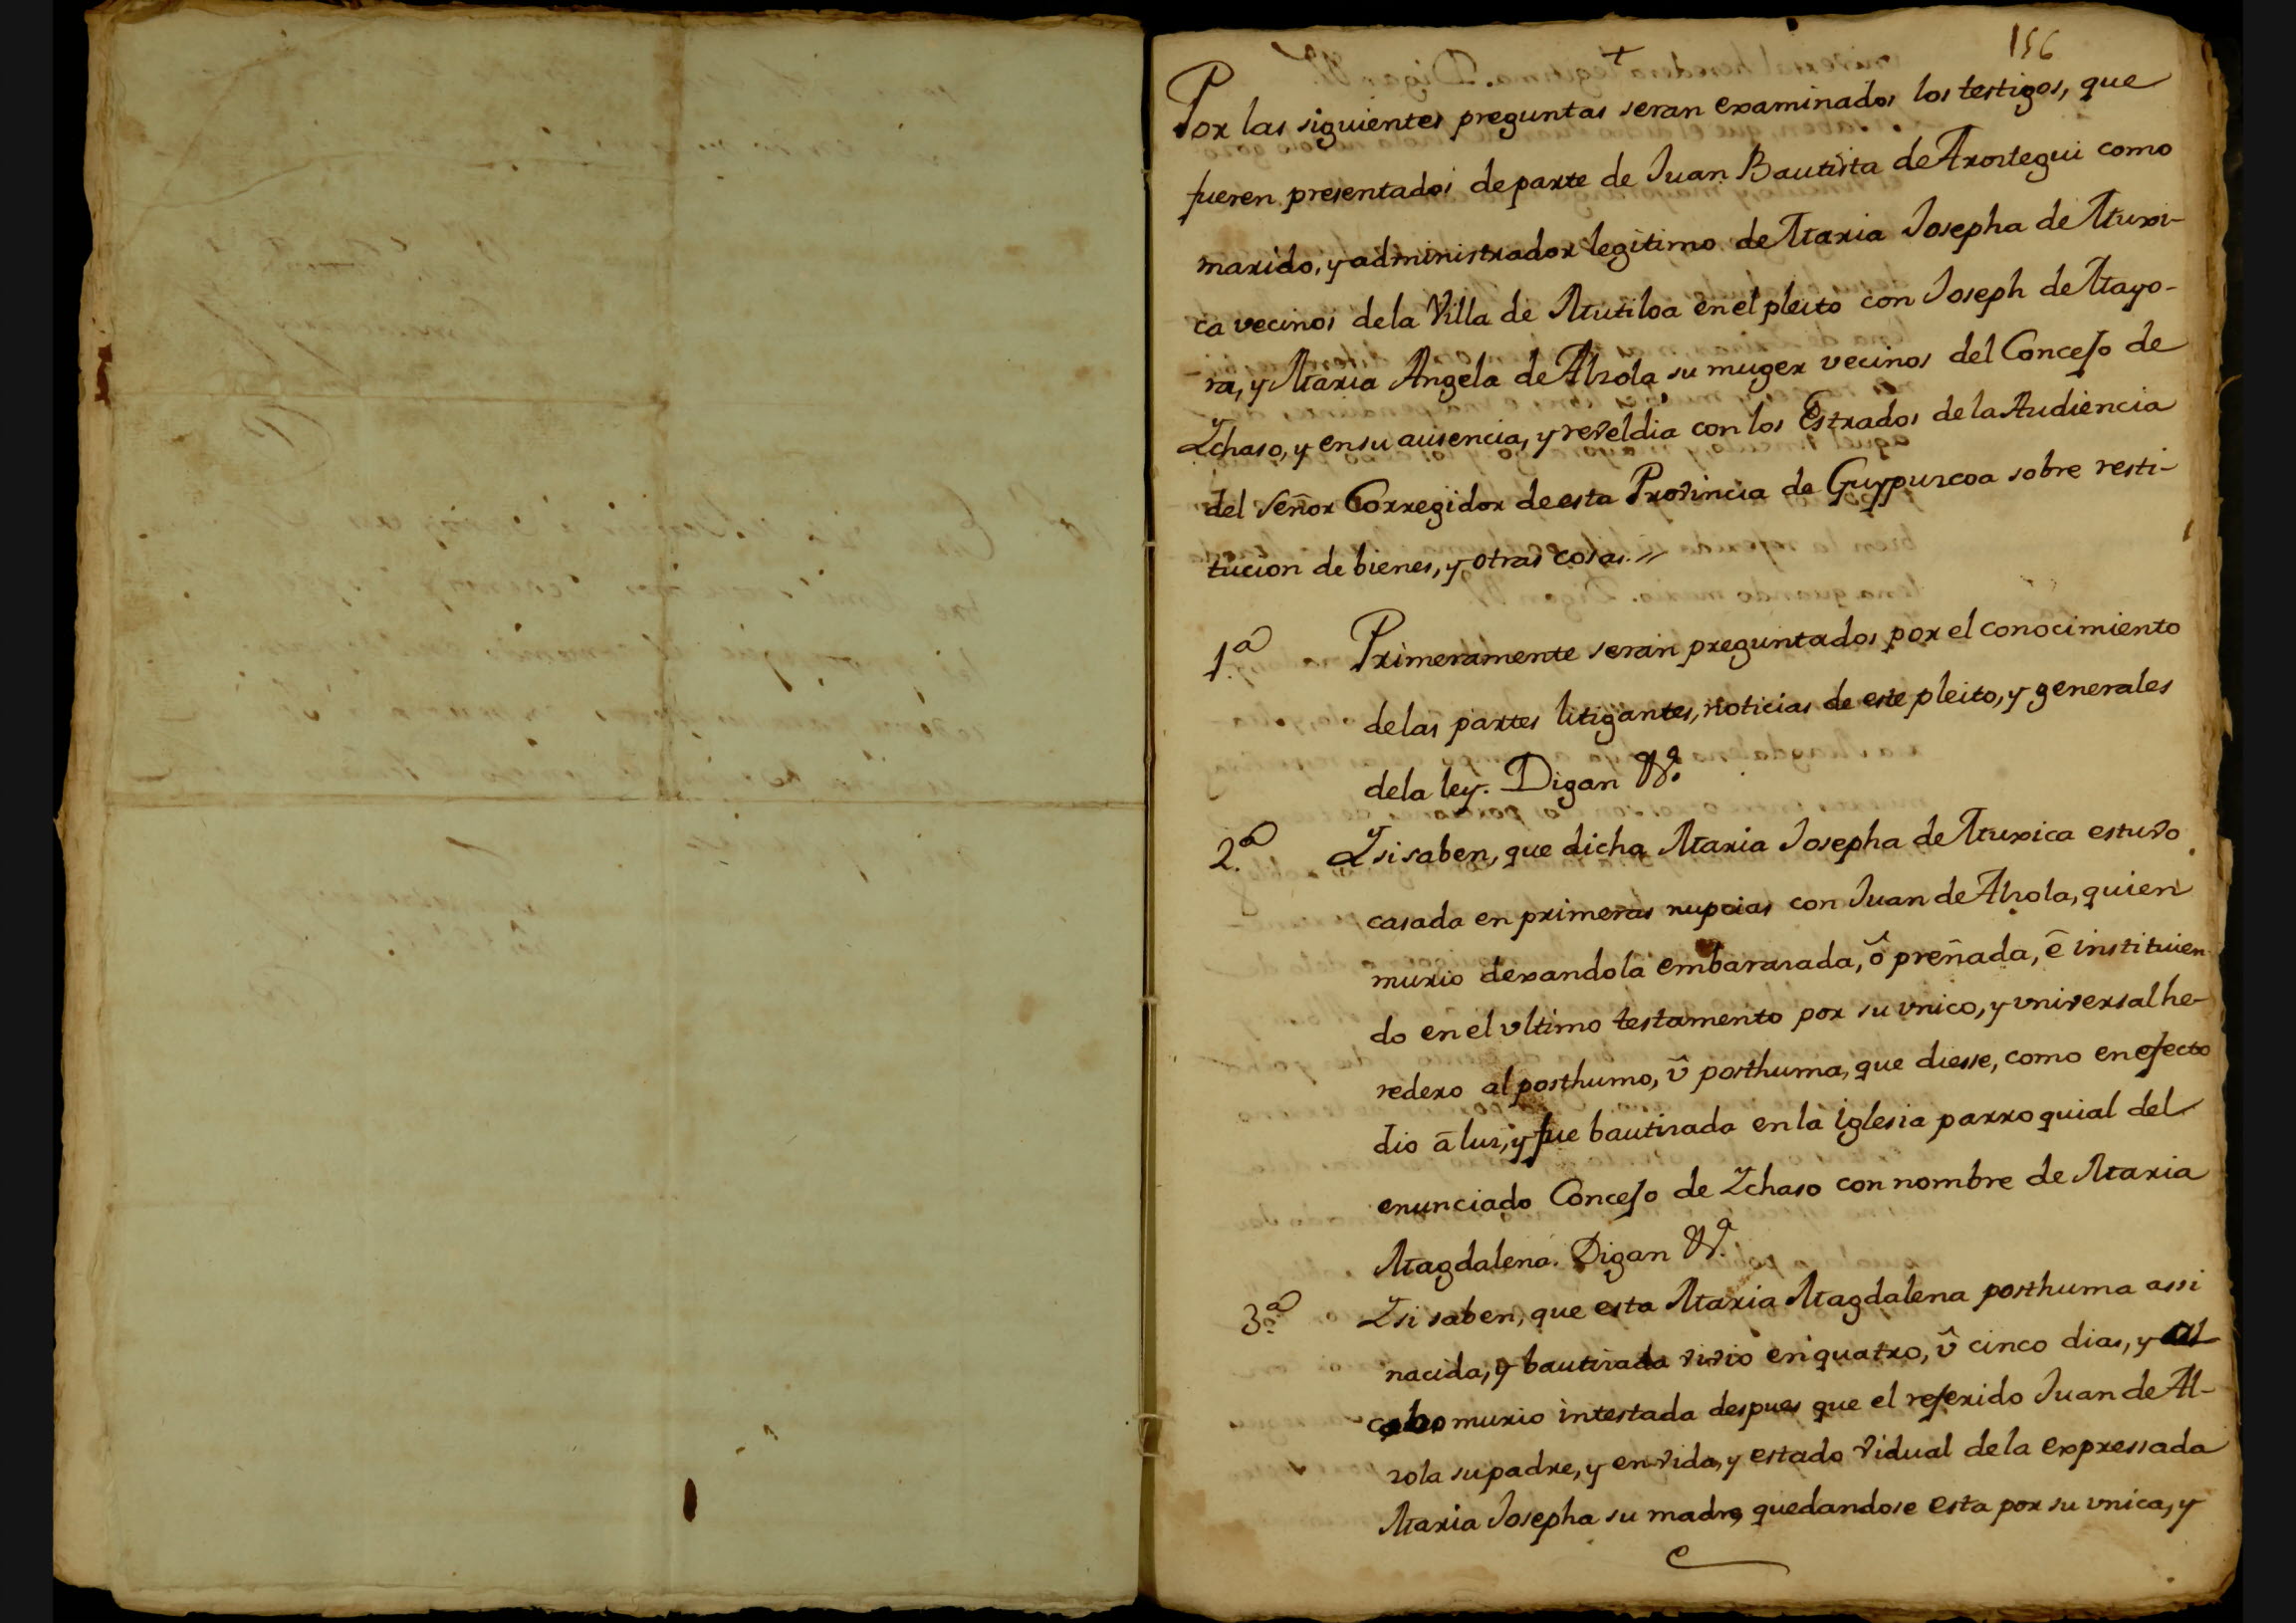 156
+
Por las siguientes preguntas seran examinados los testigos, que
fueren presentados de parte de Juan Bautista de Arostegui como
marido, y administrador legitimo de Maria Josepha de Muxi-
ca vecinos de la Villa de Mutiloa en el pleito con Joseph de Mayo-
ra, y Maria Angela de Alzola su muger vecinos del Concejo de
Ychaso, y en su ausencia, y reveldia con los Estrados de la Audiencia
del Señor Corregidor de esta Provincia de Guypuzcoa sobre resti-
tucion de bienes, y otras cosas.//
1.ª Primeramente seran preguntados por el conocimiento
de las partes litigantes, noticias de este pleito, y generales
de la ley. Digan
2.ª Y si saben, que dicha Maria Josepha de Muxica estuvo
casada en primeras nupcias con Juan de Alzola, quien
murio dexandola embarazada, ô preñada, ê instituien
do en el vltimo testamento por su vnico, y vniversal he-
redero al posthumo, û posthuma, que diesse, como en efecto
dio â luz, y fue bautizada en la iglesia parroquial del
enunciado Concejo de Ychaso con nombre de Maria
Magdalena. Digan
3.ª Y si saben, que esta Maria Magdalena posthuma assi
nacida, y bautizada vivio en quatro, û cinco dias, y al
cabo murio intestada despues que el referido Juan de Al-
zola su padre, y en vida, y estado vidual de la expressada
Maria Josepha su madre, quedandose esta por su vnica, y